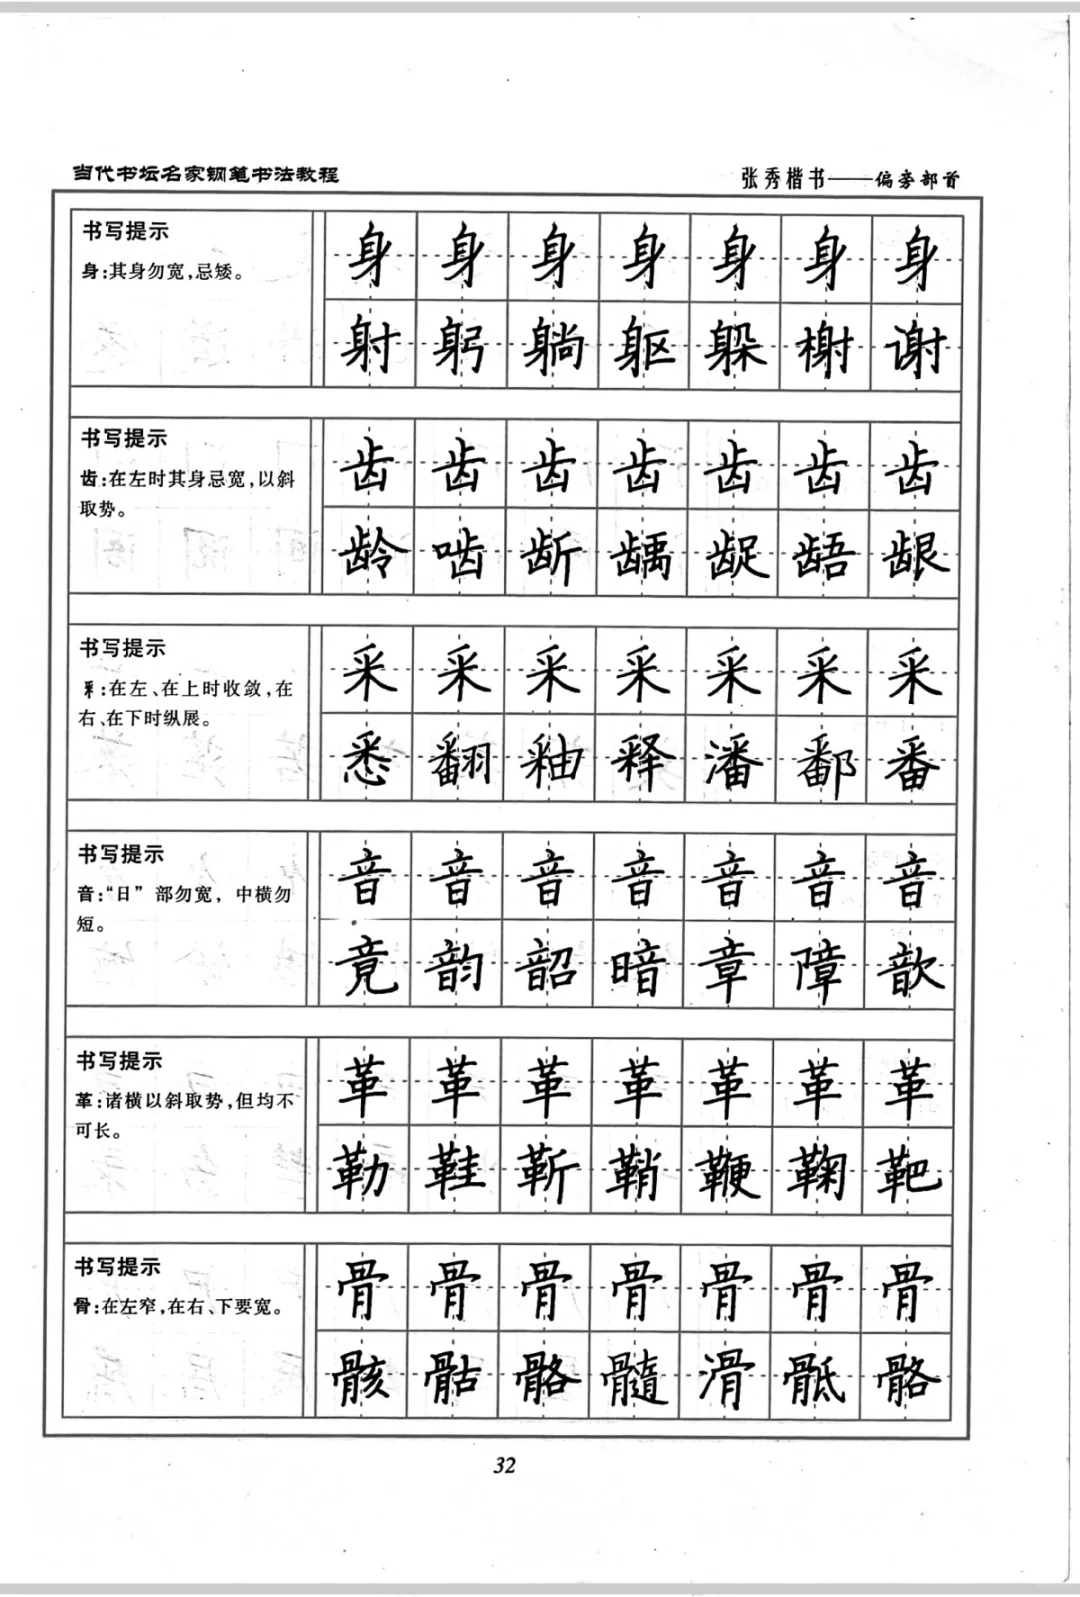 当代书坛名家钢笔书法教程
张秀楷书——偏旁部首
书写提示
身:其身勿宽,忌矮。
身 身 身 身 身 身 身
射 躬 躺 躯 躲 榭 谢
书写提示
齿:在左时其身忌宽,以斜
取势。
齿 齿 齿 齿 齿 齿 齿
龄 啮 龂 龋 龊 龉 龈
书写提示
釆:在左、在上时收敛,在
右、在下时纵展。
釆 釆 釆 釆 釆 釆 釆
悉 翻 釉 释 潘 鄱 番
书写提示
音:“日”部勿宽,中横勿
短。
音 音 音 音 音 音 音
竟 韵 韶 暗 章 障 歆
书写提示
革:诸横以斜取势,但均不
可长。
革 革 革 革 革 革 革
勒 鞋 靳 鞘 鞭 鞠 靶
书写提示
骨:在左窄,在右、下要宽。
骨 骨 骨 骨 骨 骨 骨
骸 骷 骼 髓 滑 骶 骼
32